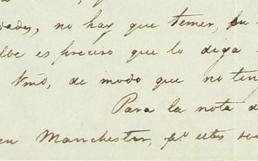 dades, no hay que temer, su
be es preciso que lo diga
Vmd, de modo que no ten
Para la nota d
en Manchester, pª estos